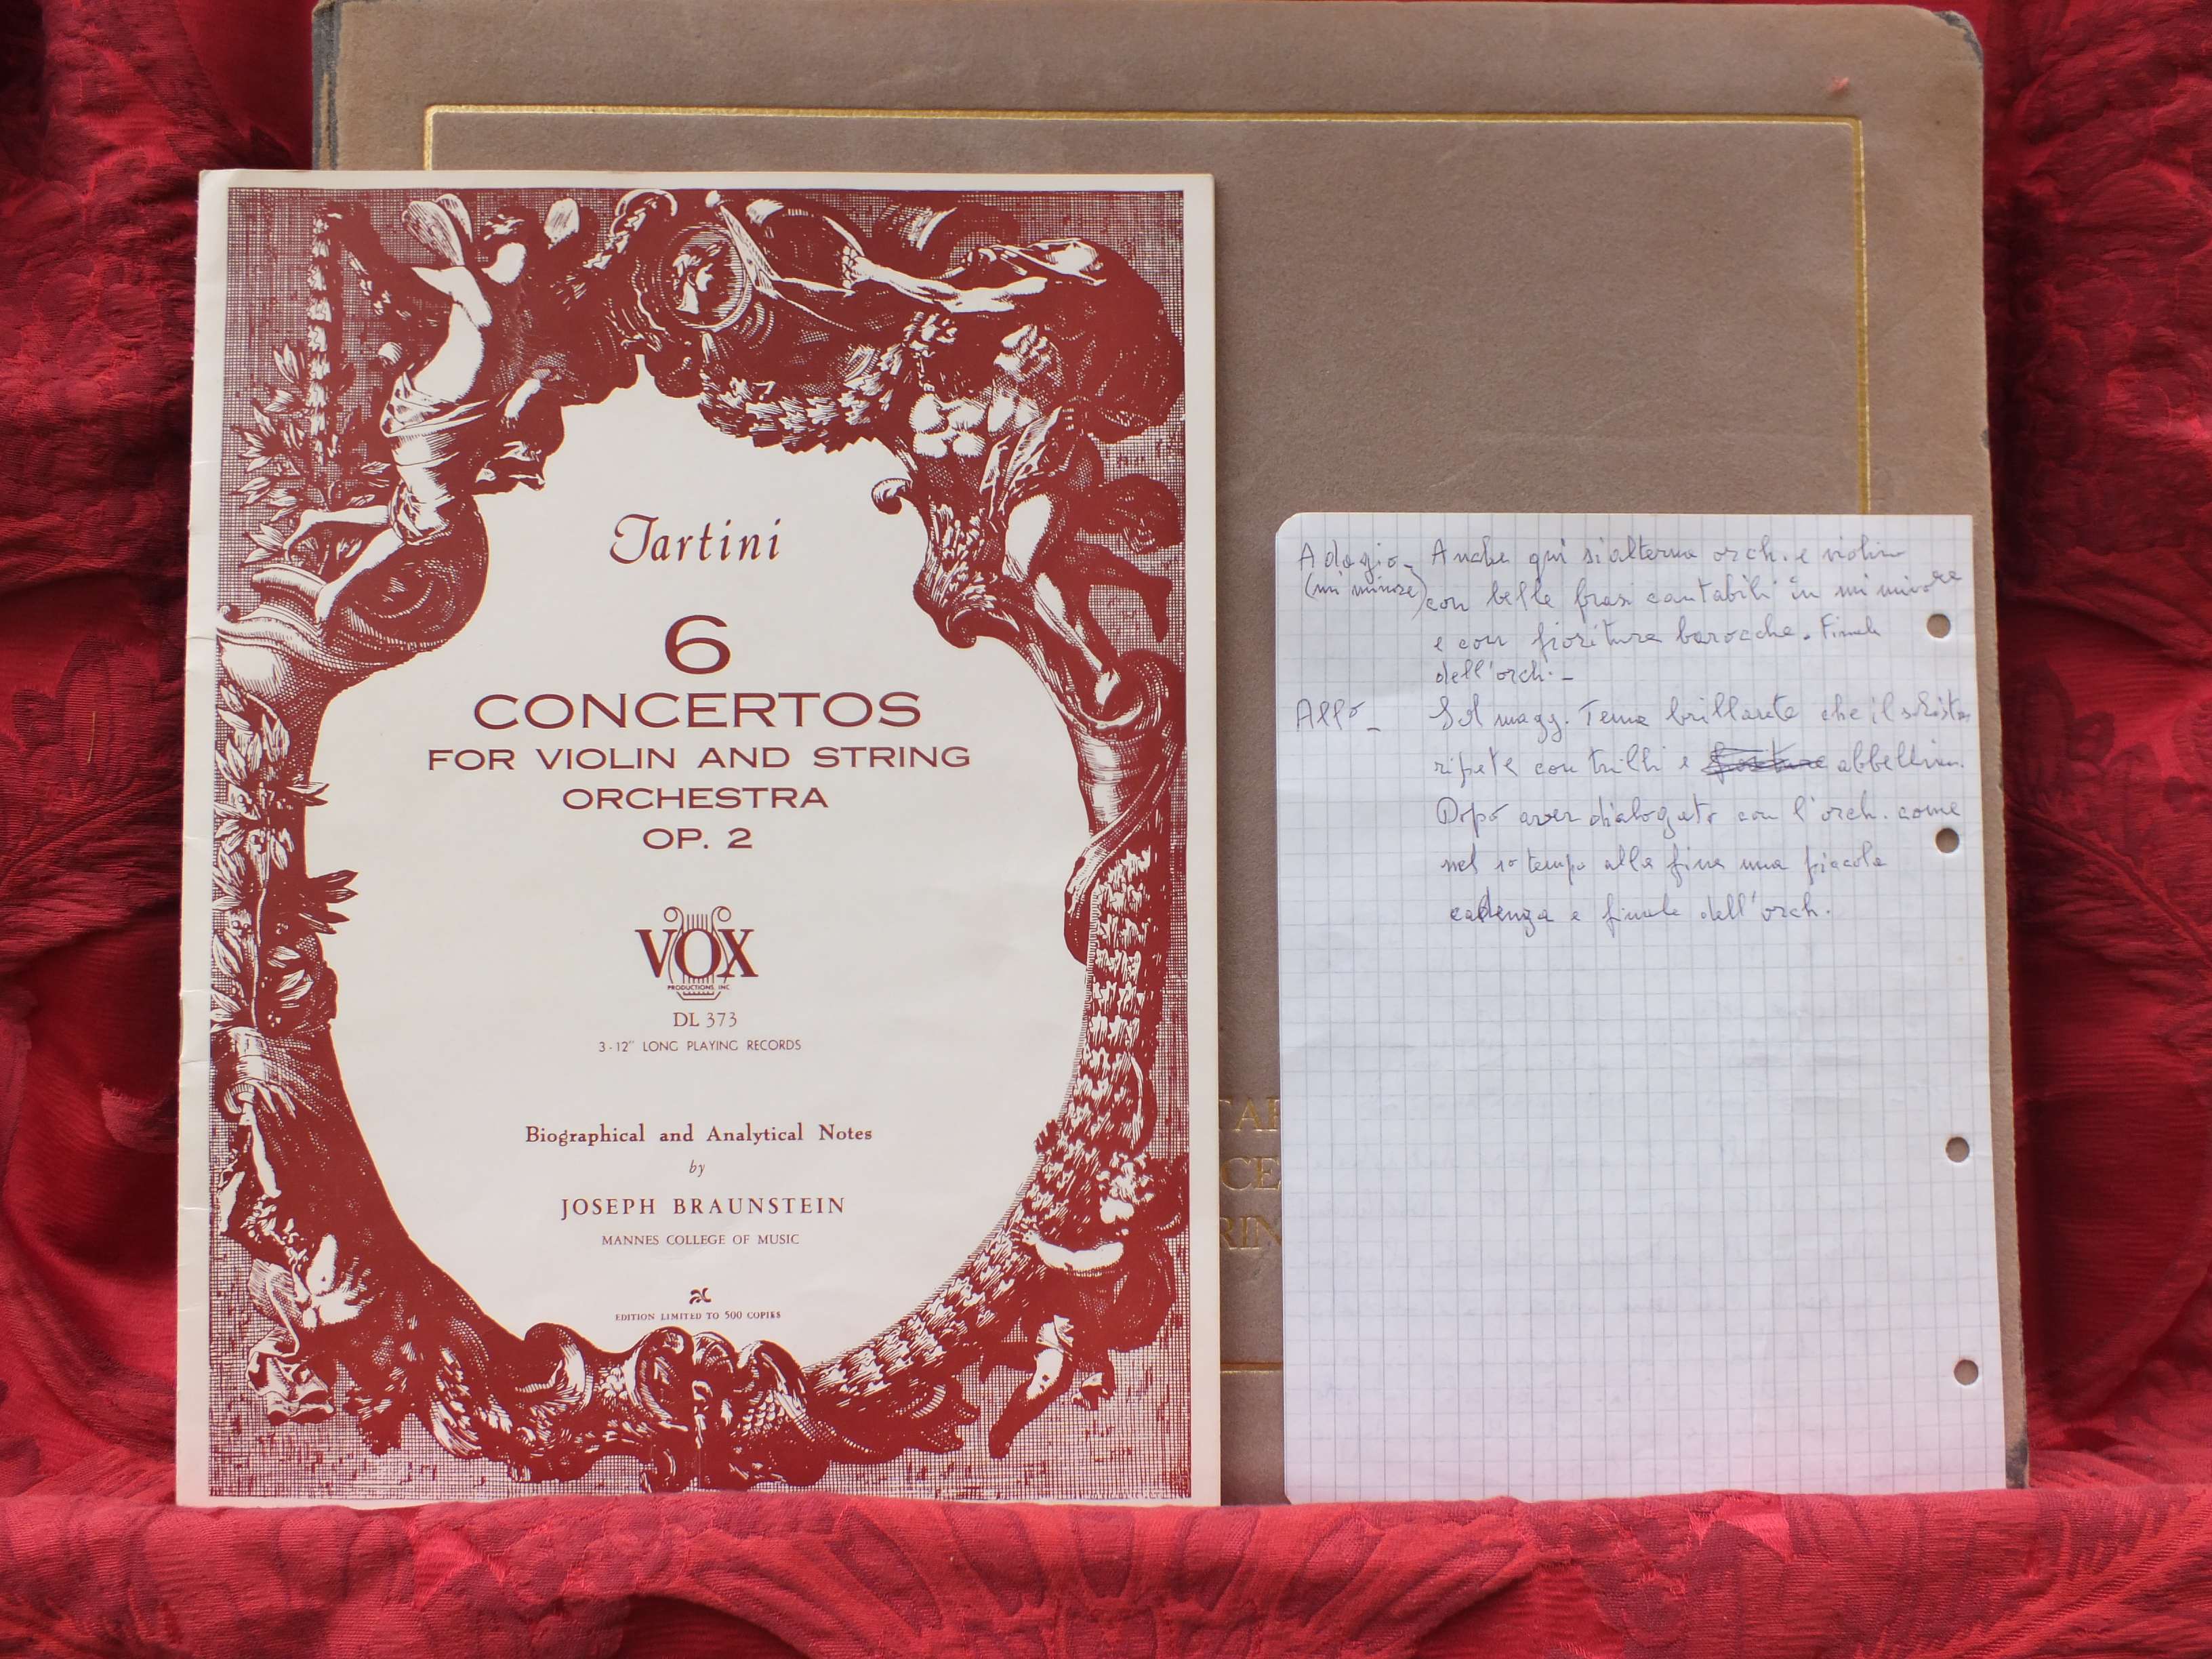 Tartini
6
CONCERTOS
FOR VIOLIN AND STRING
ORCHESTRA
OP. 2
VOX
PRODUCTIONS, INC
DL 373
3-12" LONG PLAYING RECORDS
Biographical and Analytical Notes
by
JOSEPH BRAUNSTEIN
MANNES COLLEGE OF MUSIC
EDITION LIMITED TO 500 COPIES
TAR
CE
RIN
Adagio - Anche qui si alterna orch. e violino
(mi minore) con belle frasi cantabili in mi minore
e con fioriture barocche. Finale
dell'orch. -
All° - Sol magg. Tema brillante che il solista
ripete con trilli e abbellim.
Dopo aver dialogato con l'orch. come
nel 1° tempo alla fine una piccola
cadenza e finale dell'orch.